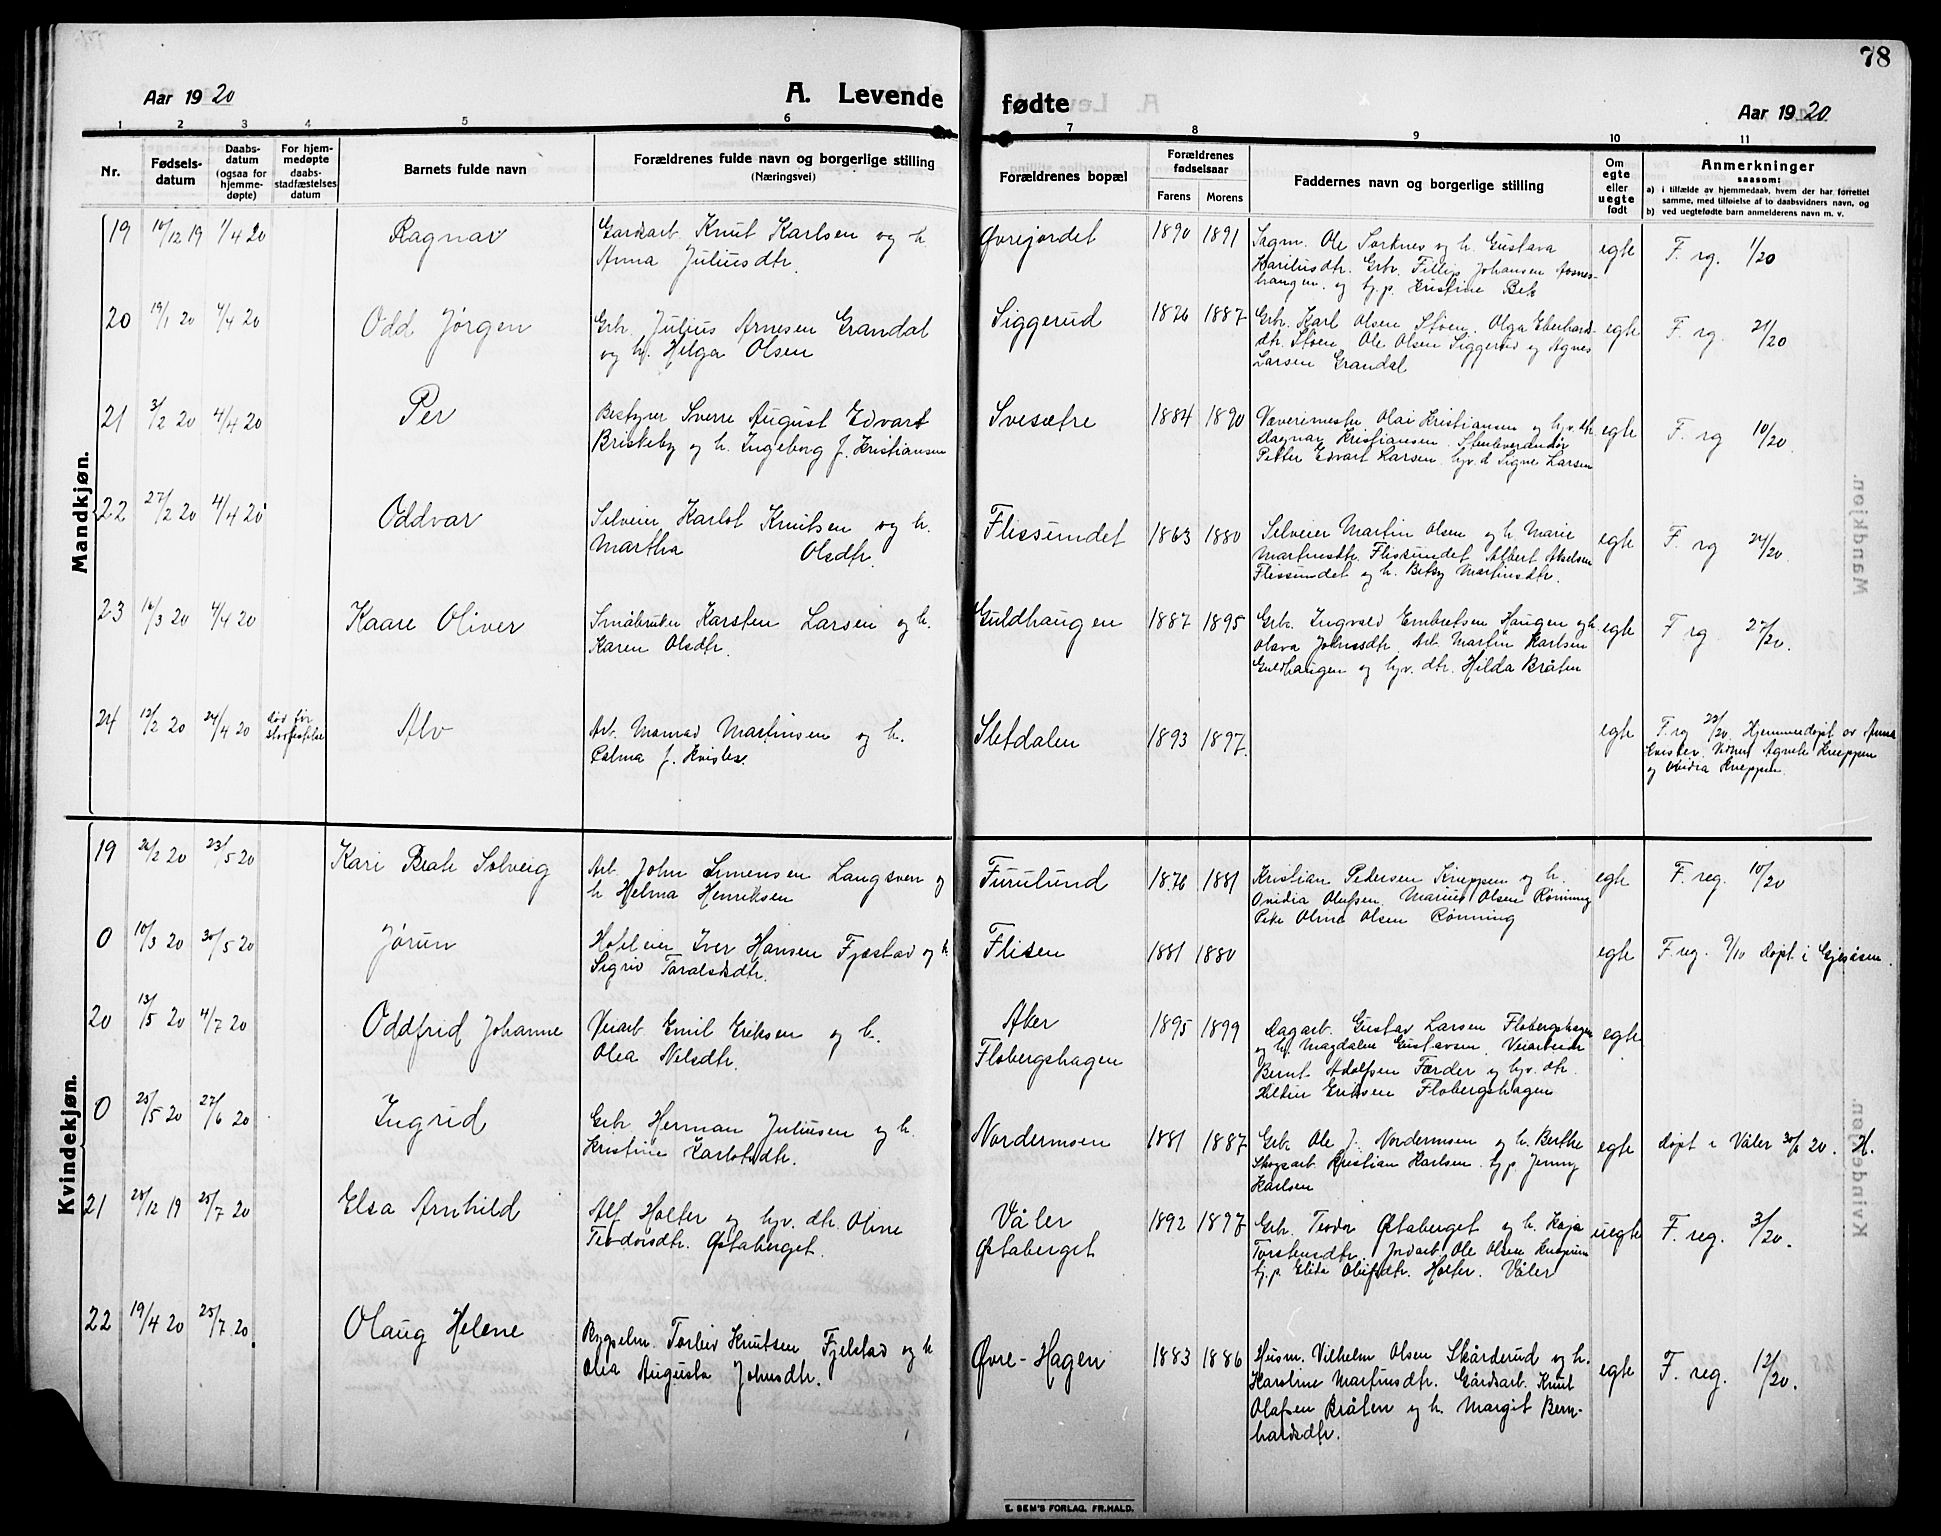 78
Aar 1920
A. Levende
fødte
Aar 1920
1 2 3 4 5 6 7 8 9 10 11
Nr.
Fødsels-
datum
Daabs-
datum
(ogsaa for
hjemme-
døpte)
For hjem-
medøpte
daabs-
stadfæstelses
datum
Barnets fulde navn
Forældrenes fulde navn og borgerlige stilling
(Næringsvei)
Forældrenes bopæl
Forældrenes
fødselsaar
Farens Morens
Faddernes navn og borgerlige stilling
Om
egte
eller
uegte
født
Anmerkninger
saasom:
a) i tilfælde av hjemmedaab, hvem der har forrettet
samme, med tilføielse af to daabsvidners navn, og
b) ved uegtefødte barn anmelderens navn m. v.
Mandkjøn.
19 10/12 19 1/4 20 Ragnar
Gardarb. Knut Karlsen og h.
Anna Juliusdtr.
Øvrejordet 1890 1891
Sagm. Ole Sorknes og h. Gustava
Kariusdtr. Grbr. Fillip Johansen Aasnes-
haugen og Kristine
egte F. rg. 1/20
20 19/1 20 4/4 20 Odd Jørgen
Grbr. Julius Arnesen Grandal
og h. Helga Olsen
Siggerud 1876 1887
Grbr. Karl Olsen Støen. Olga Eberhard-
dtr. Støen. Ole Olsen Siggerud og Agnes
Larsen Grandal
egte F. rg. 21/20
21 3/2 20 4/4 20 Per
Bestyrer Sverre August Edvart
Briskeby og h. Ingeborg f. Kristiansen
Svesætre 1884 1890
Væverimester Olai Kristiansen og
Dagnar Kristiansen.
Petter Edvart Larsen Signe Larsen
egte F. rg 10/20
22 27/2 20 4/4 20 Oddvar
Selveier Karlot Knutsen og h.
Martha Olsdtr.
Flissundet 1863 1880
Selveier Martin Olsen og h. Marie
Martinsdtr. Flissundet. Albert Akselsen
Flissundet og h. Betsy Martinsdtr.
egte F. rg 24/20
23 16/3 20 4/4 20 Kaare Oliver
Småbruker Karsten Larsen og h.
Karen Olsdtr.
Guldhaugen 1887 1895
Grbr. Ingvald Embretsen Haugen og h.
Olava Johnsdtr. Arb. Martin Karlsen
Guldhaugen og hjv. dtr. Hilda Bråten
egte F rg 27/20.
24 12/2 20 24/4 20 død før
Alv
Arb. Martinsen og h.
Palma f. Kvisler
Sletdalen 1893 1897
egte F. rg 22/20. Hjemmedøpt av Anna
Kvisler. Vidner Agnete Kneppen
og Ovidia Kneppen
Kvindekjøn.
19 26/2 20 23/5 20 Kari Beate Solveig
Arb. John Simensen Langsven og
h Helma Henriksen
Furulund 1876 1881
Kristian Pedersen Kneppen og h.
Ovidia Olufsen. Marius Olsen Rønning
Pike Oline Olsen Rønning
egte F. reg. 10/20
0 10/3 20 30/5 20 Jørun
Hoteleier Iver Hansen Fjæstad og h
Sigrid Taralsdtr.
Flisen 1881 1880
egte F. reg. 9/10 døpt i Gjesåsen.
20 13/5 20 4/7 20 Oddfrid Johanne
Veiarb. Emil Eriksen og h.
Olea Nilsdtr.
Aker
Flobergshagen
1895 1899
Dagarb. Gustav Larsen Flobergshagen
og h. Magdalene Gustavsen. Veiarbeider
Bernt Adolfsen Førder og hjv. dtr.
Eriksen Flobergshagen
egte
0 25/5 20 27/6 20 Ingrid
Grbr. Herman Juliusen og h.
Kristine Karlotsdtr.
Nordermoen 1881 1887
Grbr. Ole J. Nordermoen og h. Berthe
Skogsarb. Kristian Karlsen. hjp. Jenny
Karlsen
egte døpt i Våler 30/6 20. H.
21 25/12 19 25/7 20 Elsa Arnhild
Alf Holter og hjv. dtr. Oline
Teodorsdtr. Østaberget.
Våler
Østaberget
1892 1897
Grbr. Teodor Østaberget og h. Kaja
Torstensdtr. Jordarb. Ole Olsen
hjp. Elida Olufsdtr. Holter. Våler
uegte F. reg. 3/20.
22 19/4 20 25/7 20 Olaug Helene
Torleiv Knutsen Fjelstad og h
Olea Augusta Johnsdtr.
Øvre-Hagen 1883 1886
Husm. Vilhelm Olsen Skårderud og h.
Karoline Martinsdtr. Gårdsarb. Knut
Olafsen Bråten og h. Margit Bern-
hardsdtr.
egte F. reg. 12/20.
E. SEM'S FORLAG, FR.HALD.